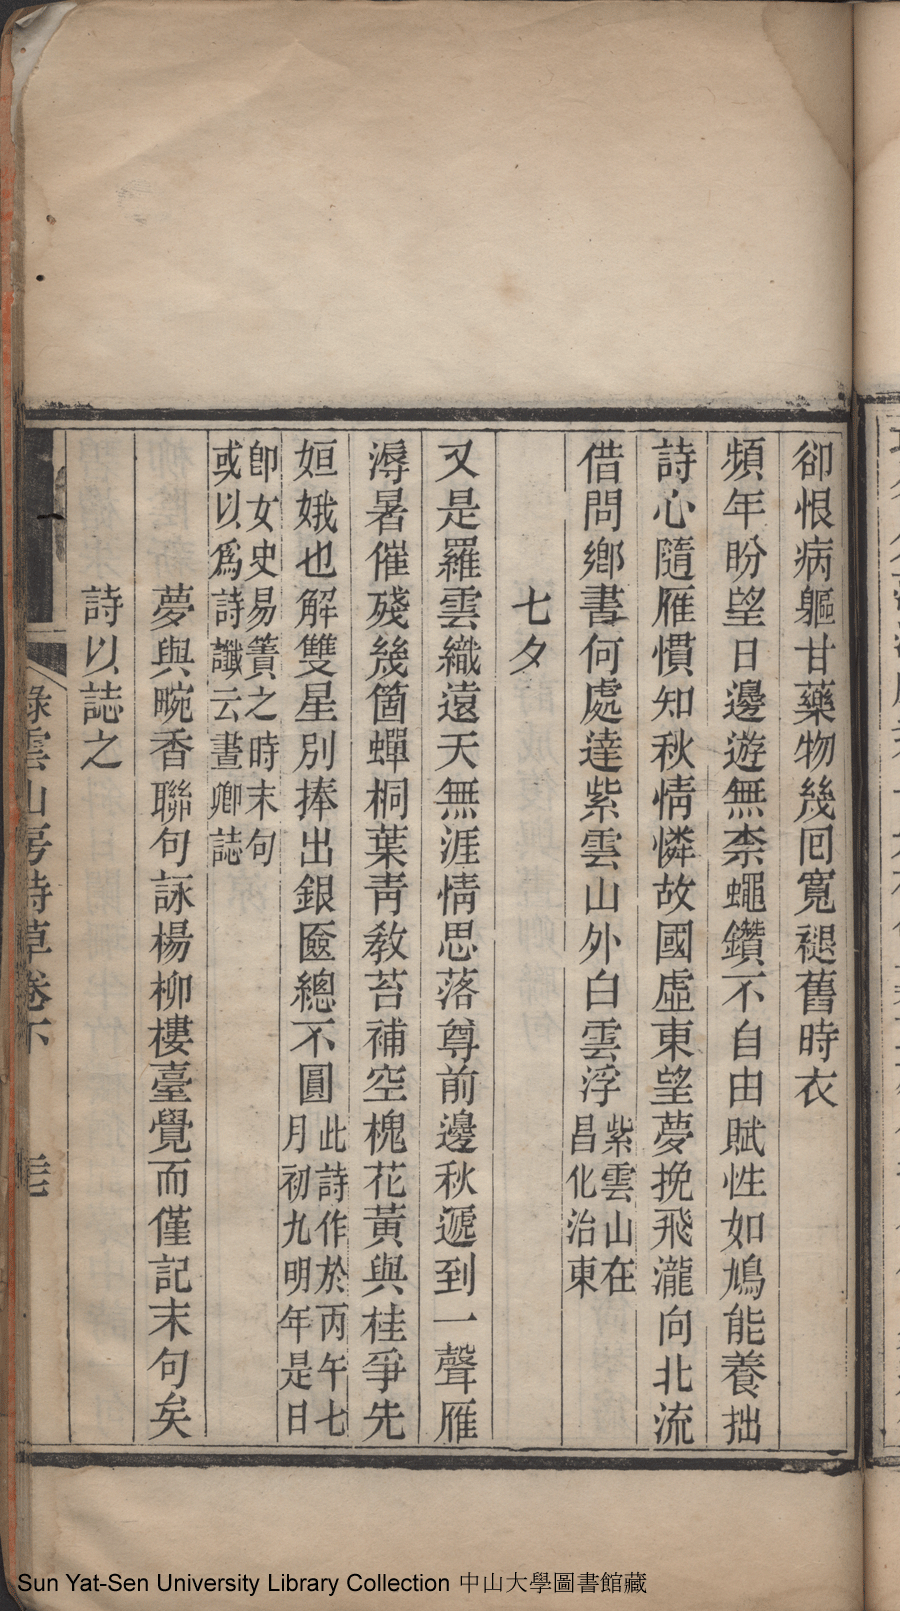 卻恨病軀甘藥物幾回寬褪舊時衣
頻年盼望日邊遊無柰蠅鑽不自由賦性如鳩能養拙
詩心隨雁慣知秋情憐故國虛東望夢挽飛瀧向北流
借問鄉書何處達紫雲山外白雲浮紫雲山在昌化治東
七夕
又是羅雲織遠天無涯情思落尊前邊秋遞到一聲雁
溽暑催殘幾箇蟬桐葉青教苔補空槐花黃與桂爭先
姮娥也解雙星別捧出銀匳總不圓此詩作於丙午七月初九明年是日
卽女史易簀之時末句或以爲詩讖云晝卿誌
夢與畹香聯句詠楊柳樓臺覺而僅記末句矣
詩以誌之
綠雲山房詩草卷下
Sun Yat-Sen University Library Collection 中山大學圖書館藏